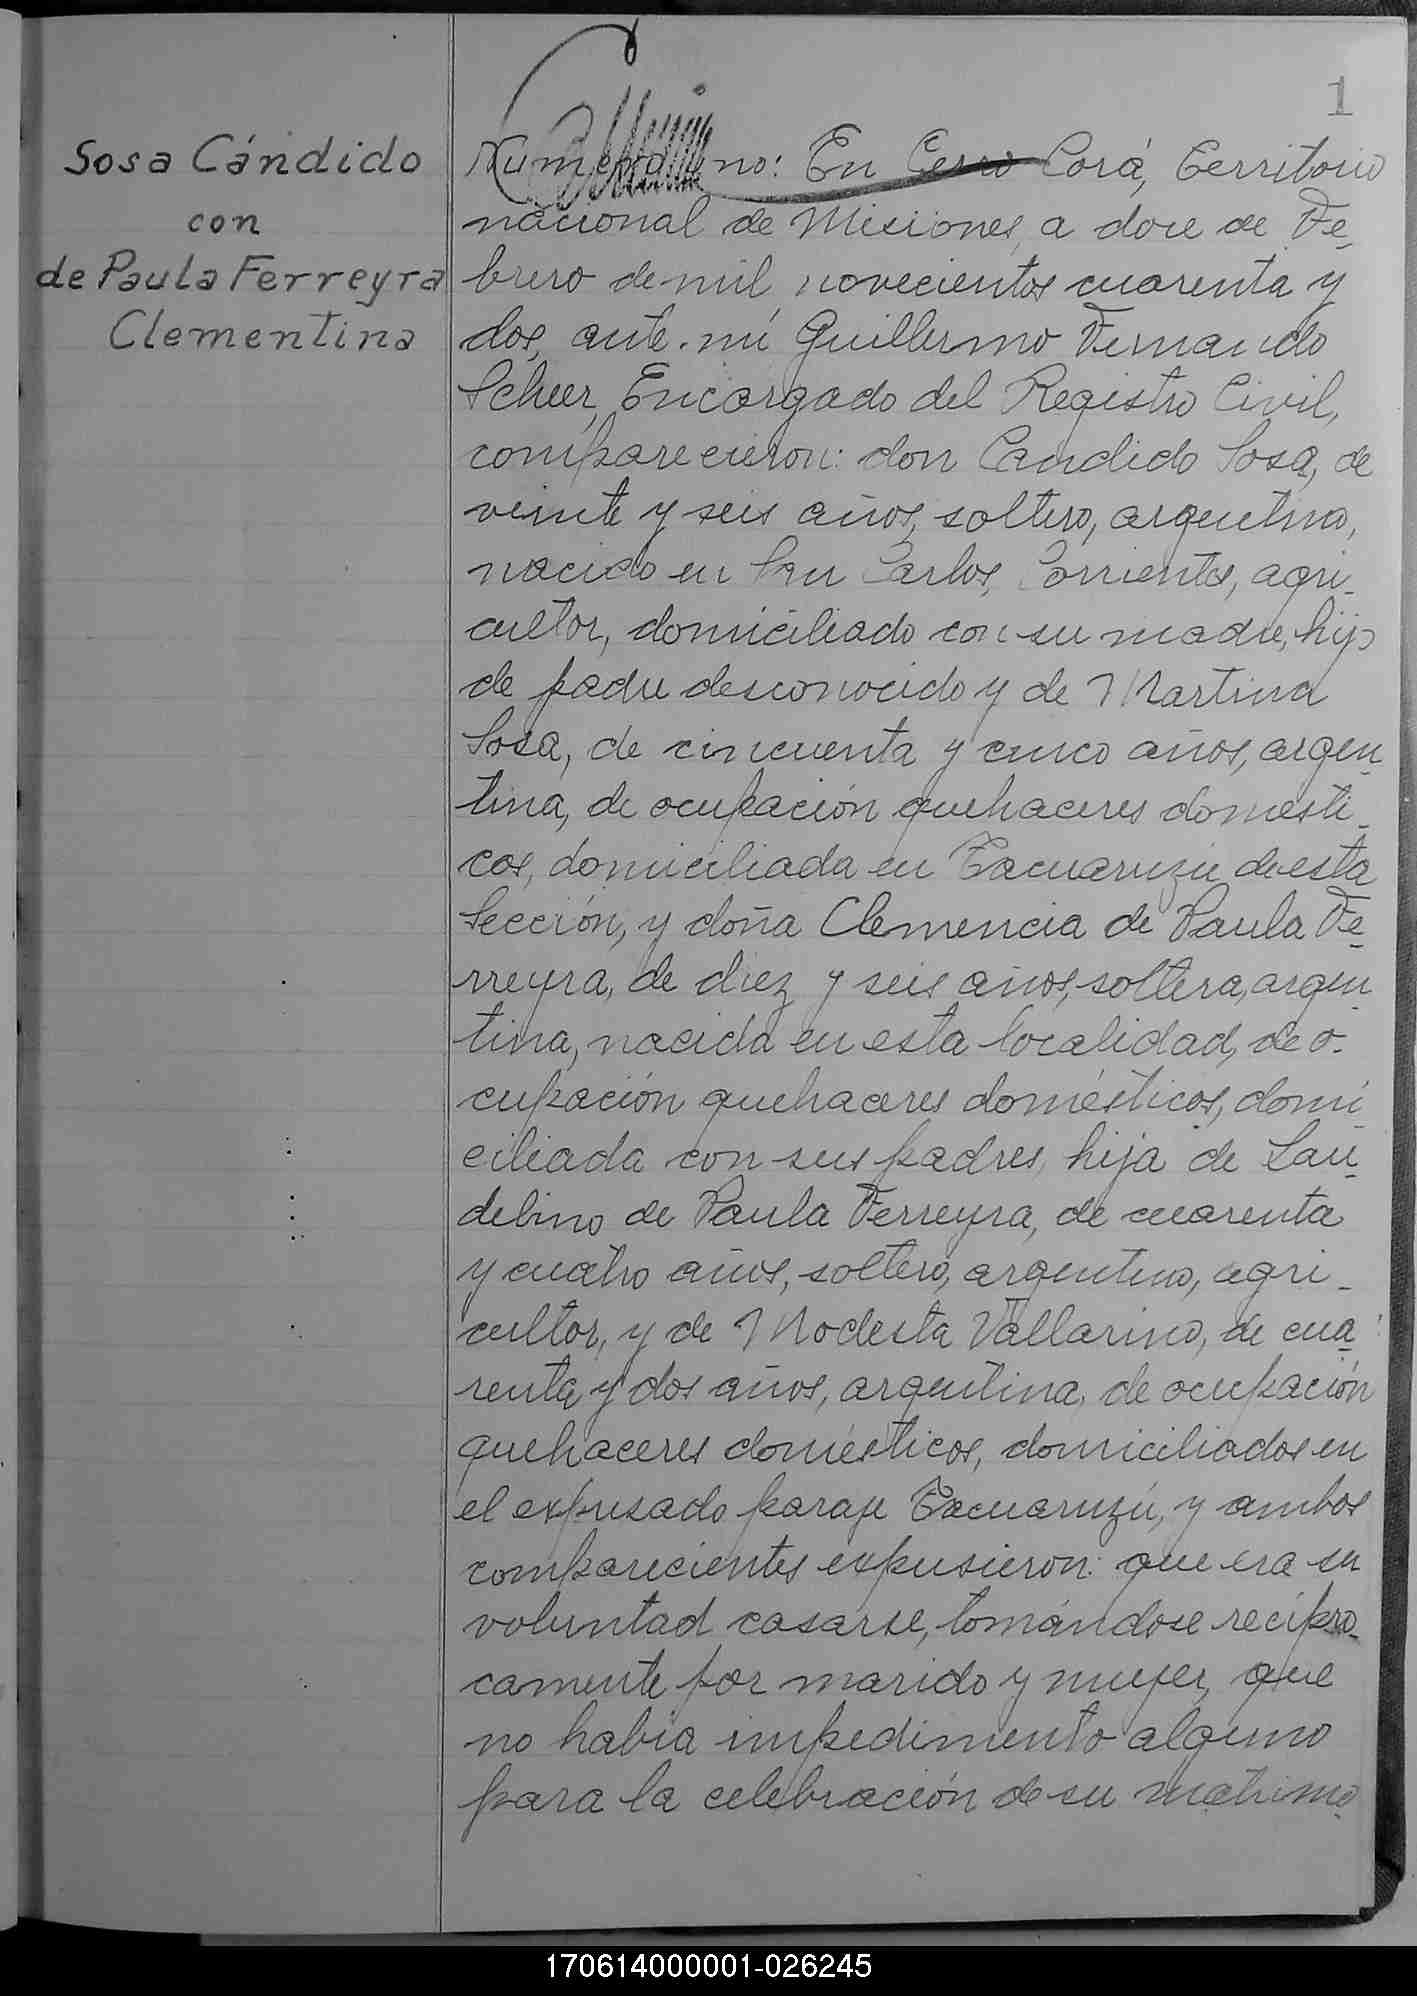 1
Sosa Cándido
con
de Paula Ferreyra
Clementina
Numero uno: En Cerro Corá, Territorio
nacional de Misiones, a doce de Fe-
brero de mil novecientos cuarenta y
dos, ante mí Guillermo Fernando
Scheer, Encargado del Registro Civil,
comparecieron: don Candido Sosa, de
veinte y seis años, soltero, argentino,
nacido en San Carlos, Corrientes, agri-
cultor, domiciliado con su madre, hijo
de padre desconocido y de Martina
Sosa, de cincuenta y cinco años, argen-
tina, de ocupación quehaceres domesti-
cos, domiciliada en Tacuaruzú de esta
Sección, y doña Clemencia de Paula Fe-
rreyra, de diez y seis años, soltera, argen-
tina, nacida en esta localidad, de o-
cupación quehaceres domésticos, domi-
ciliada con sus padres, hija de Lau-
delino de Paula Ferreyra, de cuarenta
y cuatro años, soltero, argentino, agri-
cultor, y de Modesta Vallarino, de cua-
renta y dos años, argentina, de ocupación
quehaceres domésticos, domiciliados en
el expresado paraje Tacuaruzú, y ambos
comparecientes expusieron: que era su
voluntad casarse, tomándose recípro-
camente por marido y mujer, que
no habia impedimento alguno
para la celebración de su matrimo-
170614000001-026245